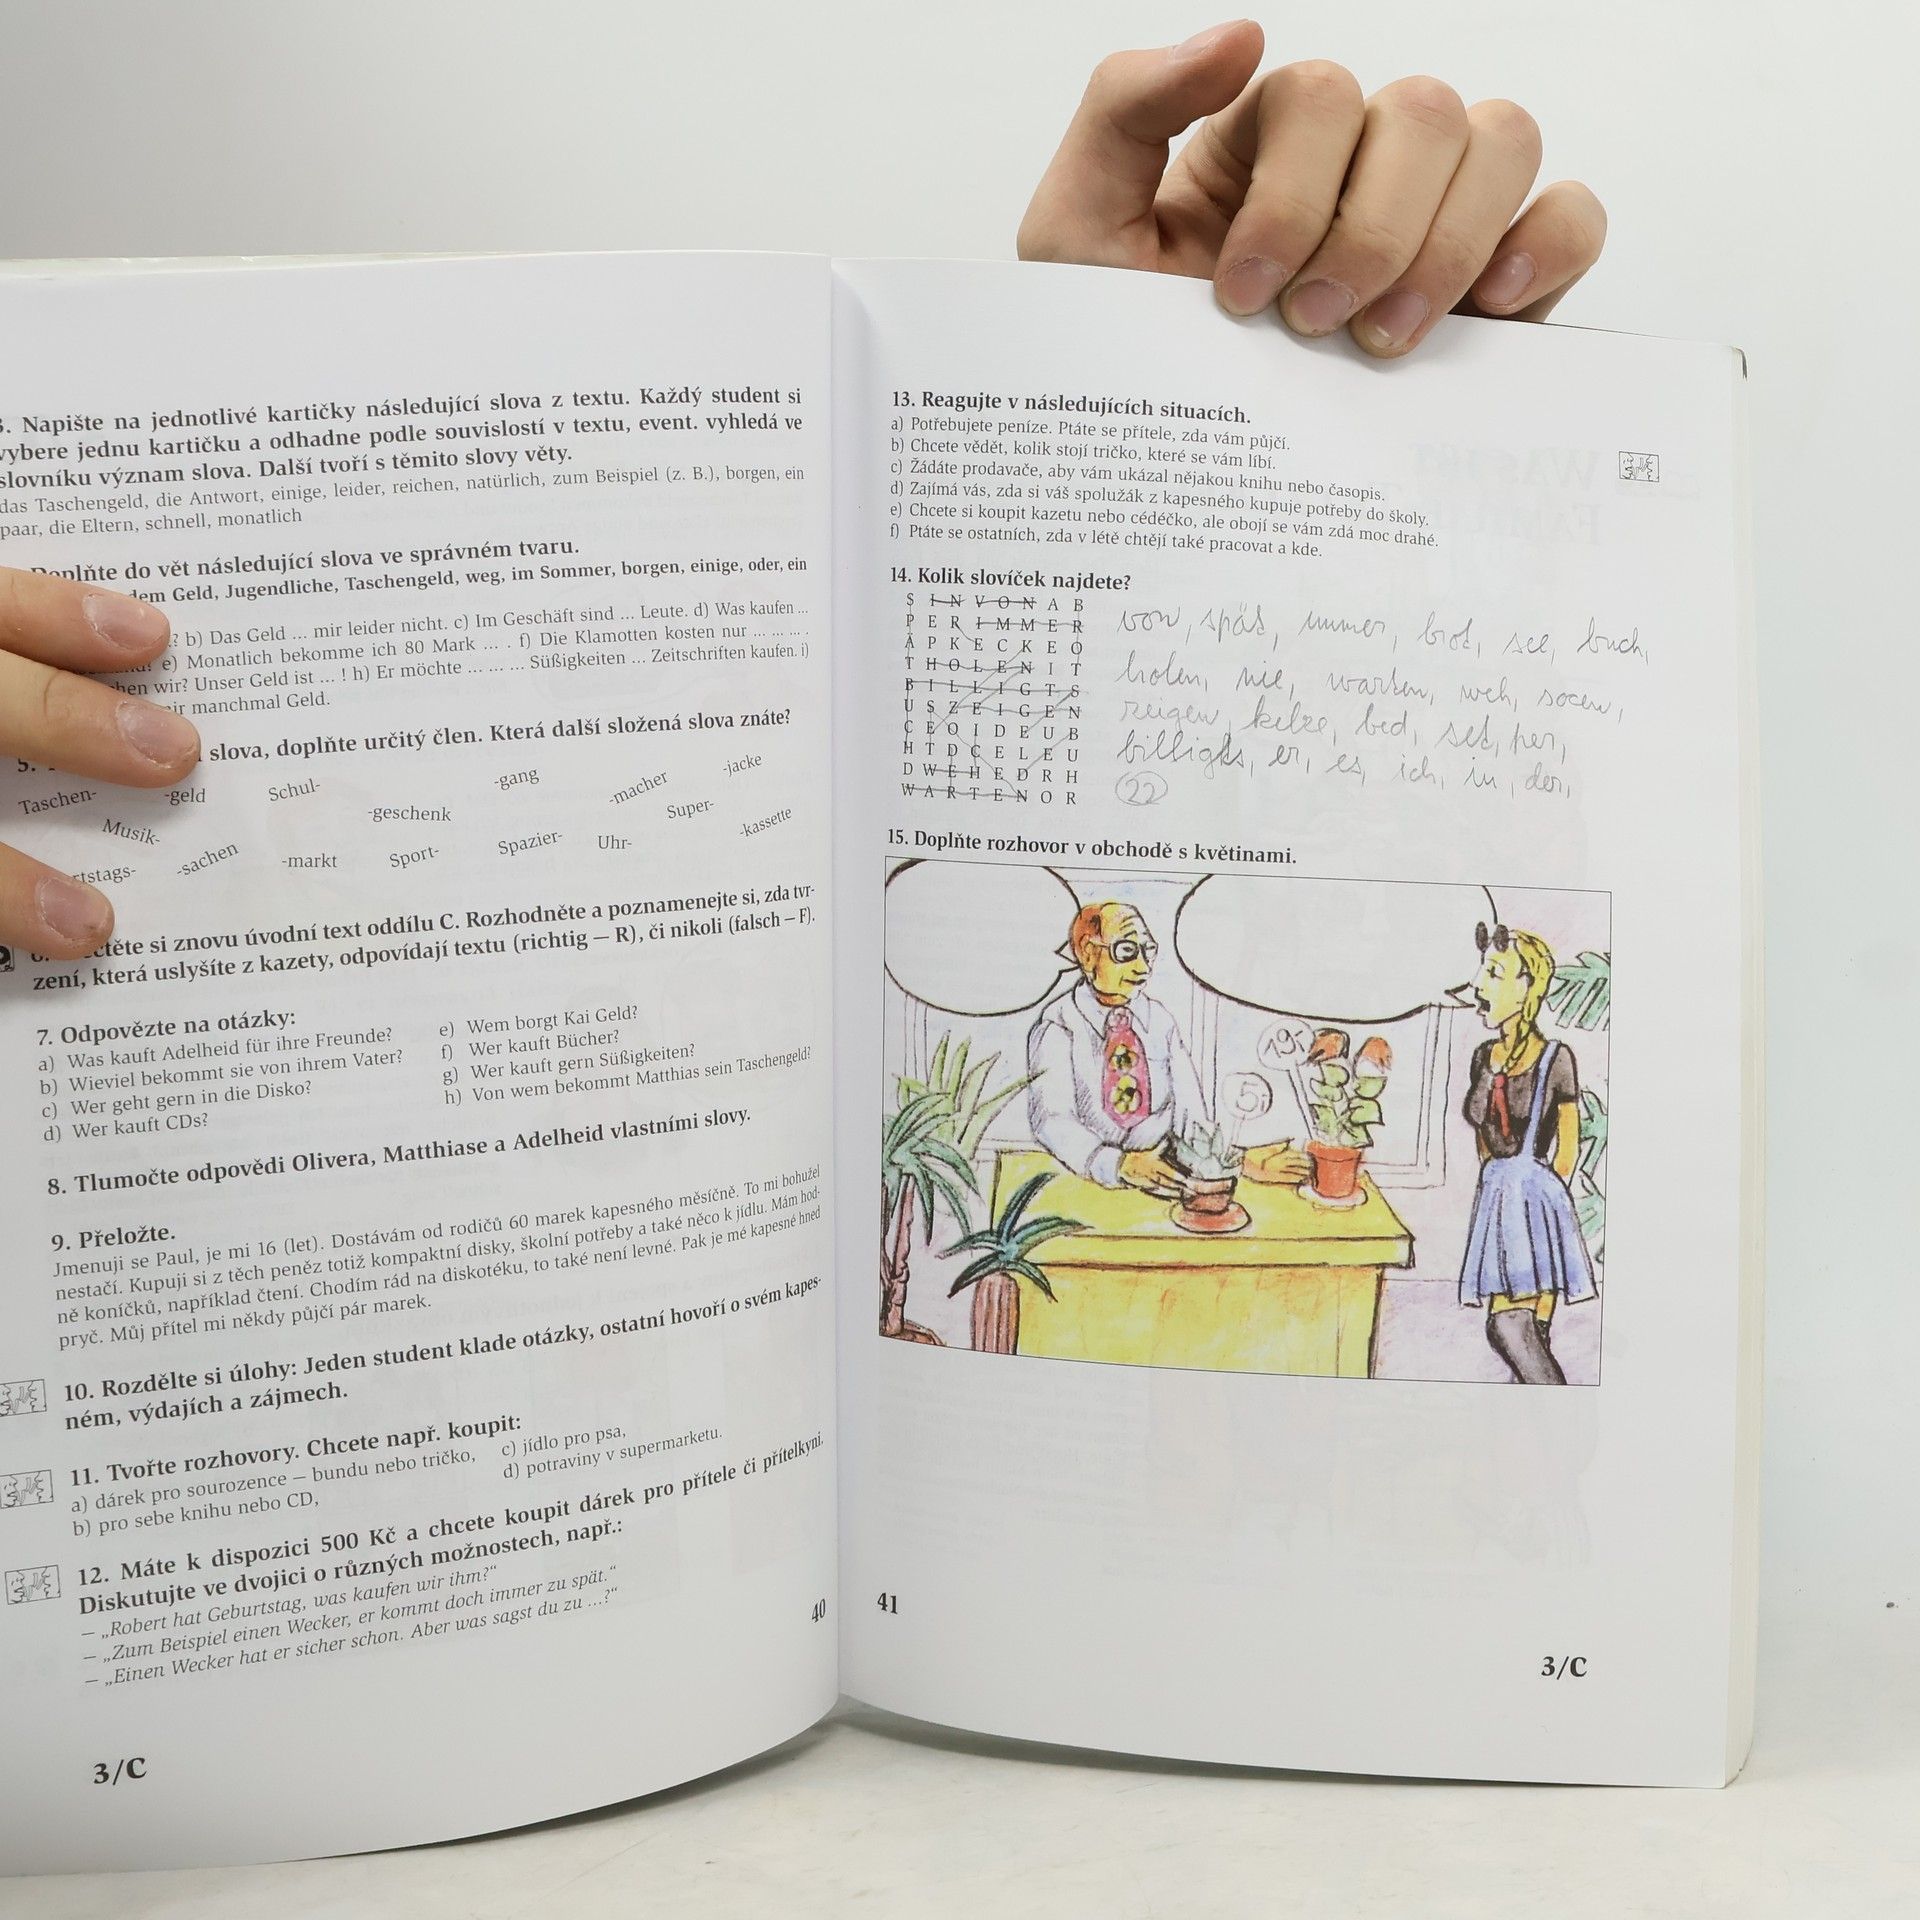 3. Napište na jednotlivé kartičky následující slova z textu. Každý student si
vybere jednu kartičku a odhadne podle souvislostí v textu, event. vyhledá ve
slovníku význam slova. Další tvoří s těmito slovy věty.
das Taschengeld, die Antwort, einige, leider, reichen, natürlich, zum Beispiel (z. B.), borgen, ein
paar, die Eltern, schnell, monatlich
Doplňte do vět následující slova ve správném tvaru.
dem Geld, Jugendliche, Taschengeld, weg, im Sommer, borgen, einige, oder, ein
? b) Das Geld ... mir leider nicht. c) Im Geschäft sind ... Leute. d) Was kaufen ...
e) Monatlich bekomme ich 80 Mark ... . f) Die Klamotten kosten nur ... ... ... .
wir? Unser Geld ist ... ! h) Er möchte ... ... ... Süßigkeiten ... Zeitschriften kaufen. i)
manchmal Geld.
5. slova, doplňte určitý člen. Která další složená slova znáte?
Taschen- -geld Schul- -gang -jacke
Musik- -geschenk -macher Super-
-sachen -markt Sport- Spazier- Uhr- -kassette
si znovu úvodní text oddílu C. Rozhodněte a poznamenejte si, zda tvr-
zení, která uslyšíte z kazety, odpovídají textu (richtig – R), či nikoli (falsch – F).
7. Odpovězte na otázky:
a) Was kauft Adelheid für ihre Freunde?
b) Wieviel bekommt sie von ihrem Vater?
c) Wer geht gern in die Disko?
d) Wer kauft CDs?
e) Wem borgt Kai Geld?
f) Wer kauft Bücher?
g) Wer kauft gern Süßigkeiten?
h) Von wem bekommt Matthias sein Taschengeld?
8. Tlumočte odpovědi Olivera, Matthiase a Adelheid vlastními slovy.
9. Přeložte.
Jmenuji se Paul, je mi 16 (let). Dostávám od rodičů 60 marek kapesného měsíčně. To mi bohužel
nestačí. Kupuji si z těch peněz totiž kompaktní disky, školní potřeby a také něco k jídlu. Mám hod-
ně koníčků, například čtení. Chodím rád na diskotéku, to také není levné. Pak je mé kapesné hned
pryč. Můj přítel mi někdy půjčí pár marek.
10. Rozdělte si úlohy: Jeden student klade otázky, ostatní hovoří o svém kapes-
ném, výdajích a zájmech.
11. Tvořte rozhovory. Chcete např. koupit:
a) dárek pro sourozence – bundu nebo tričko,
b) pro sebe knihu nebo CD,
c) jídlo pro psa,
d) potraviny v supermarketu.
12. Máte k dispozici 500 Kč a chcete koupit dárek pro přítele či přítelkyni.
Diskutujte ve dvojici o různých možnostech, např.:
– „Robert hat Geburtstag, was kaufen wir ihm?“
– „Zum Beispiel einen Wecker, er kommt doch immer zu spät.“
– „Einen Wecker hat er sicher schon. Aber was sagst du zu ...?“
40
3/C
13. Reagujte v následujících situacích.
a) Potřebujete peníze. Ptáte se přítele, zda vám půjčí.
b) Chcete vědět, kolik stojí tričko, které se vám líbí.
c) Žádáte prodavače, aby vám ukázal nějakou knihu nebo časopis.
d) Zajímá vás, zda si váš spolužák z kapesného kupuje potřeby do školy.
e) Chcete si koupit kazetu nebo cédéčko, ale obojí se vám zdá moc drahé.
f) Ptáte se ostatních, zda v létě chtějí také pracovat a kde.
14. Kolik slovíček najdete?
S I N V O N A B
P E R I M M E R
Ä P K E C K E O
T H O L E N I T
B I L L I G T S
U S Z E I G E N
C E O I D E U B
H T D C E L E U
D W E H E D R H
W A R T E N O R
von, spät, immer, brot, see, buch,
holen, nie, warten, weh, socen,
zeigen, kelze, bed, set, per,
billigts, er, es, ich, in, der,
22
15. Doplňte rozhovor v obchodě s květinami.
19,-
5,-
41
3/C